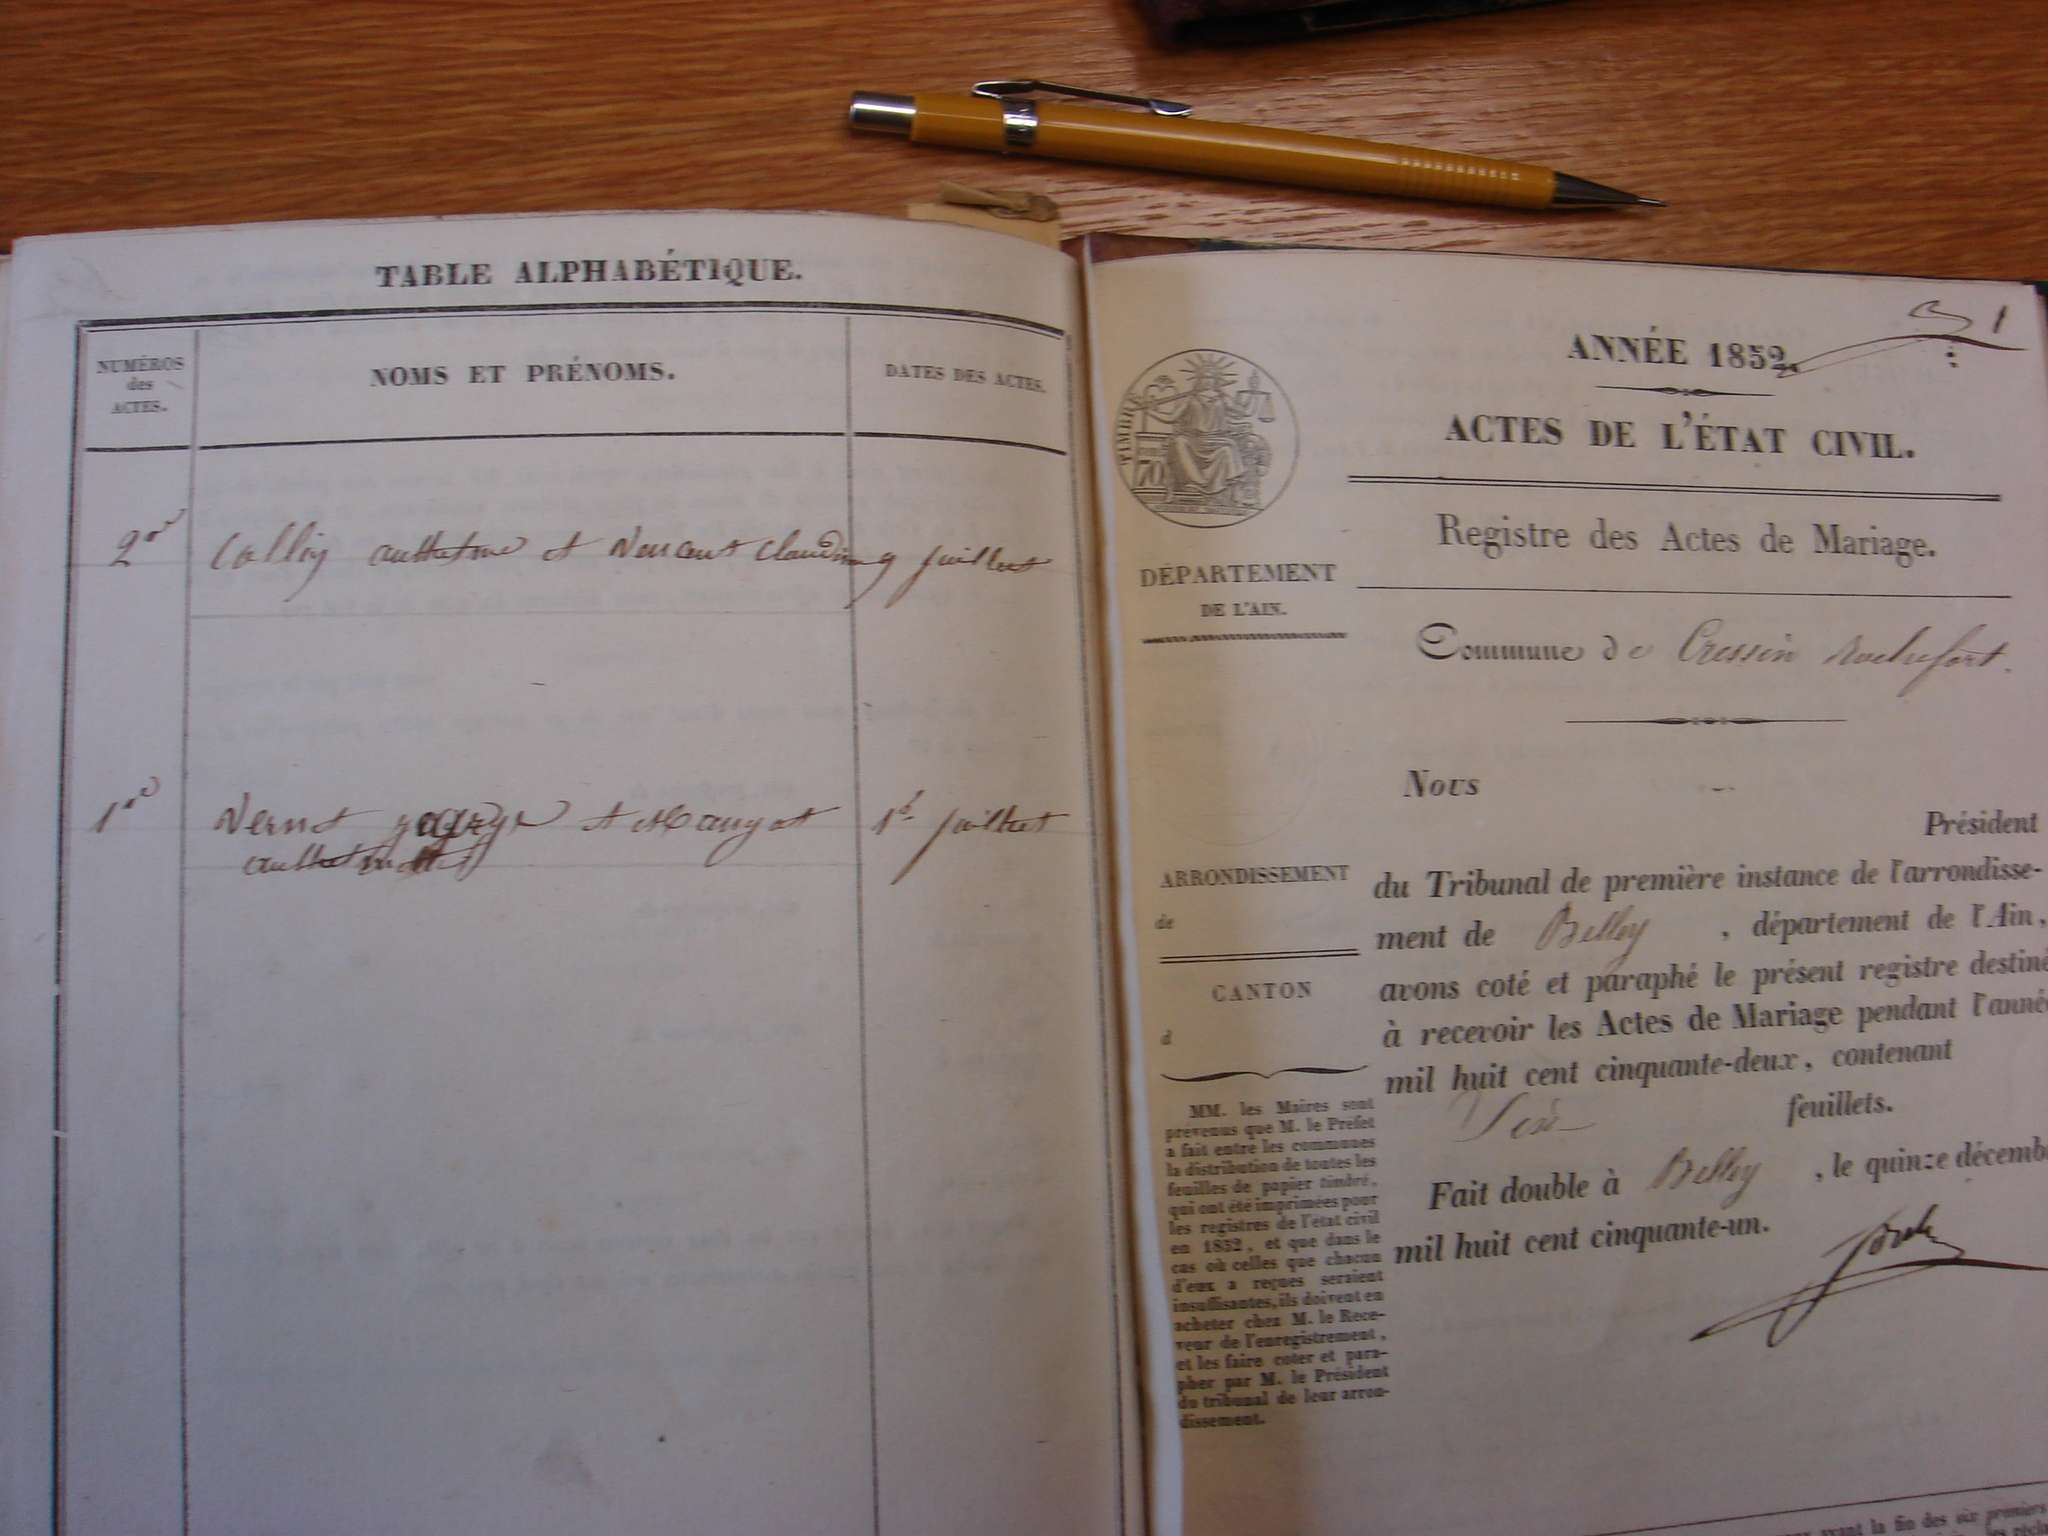 TABLE ALPHABÉTIQUE.
NUMÉROS
des
ACTES.
NOMS ET PRÉNOMS.
DATES DES ACTES.
2
et Claudine 9 juillet
1
Vernet et
1 juillet
1
ANNÉE 1852.
ACTES DE L'ÉTAT CIVIL.
Registre des Actes de Mariage.
TIMBRE
70
DÉPARTEMENT
DE L'AIN.
Commune de Cressin Rochefort.
Nous
Président
ARRONDISSEMENT
de
CANTON
d
du Tribunal de première instance de l'arrondisse-
ment de Belley, département de l'Ain,
avons coté et paraphé le présent registre destiné
à recevoir les Actes de Mariage pendant l'année
mil huit cent cinquante-deux, contenant
feuillets.
Fait double à Belley, le quinze décemb
mil huit cent cinquante-un.
MM. les Maires sont
prévenus que M. le Préfet
a fait entre les communes
la distribution de toutes les
feuilles de papier timbré,
qui ont été imprimées pour
les registres de l'état civil
en 1852, et que dans le
cas où celles que chacun
d'eux a reçues seraient
insuffisantes, ils doivent en
acheter chez M. le Rece-
veur de l'enregistrement,
et les faire coter et para-
pher par M. le Président
du tribunal de leur arron-
dissement.
avant la fin des six premiers